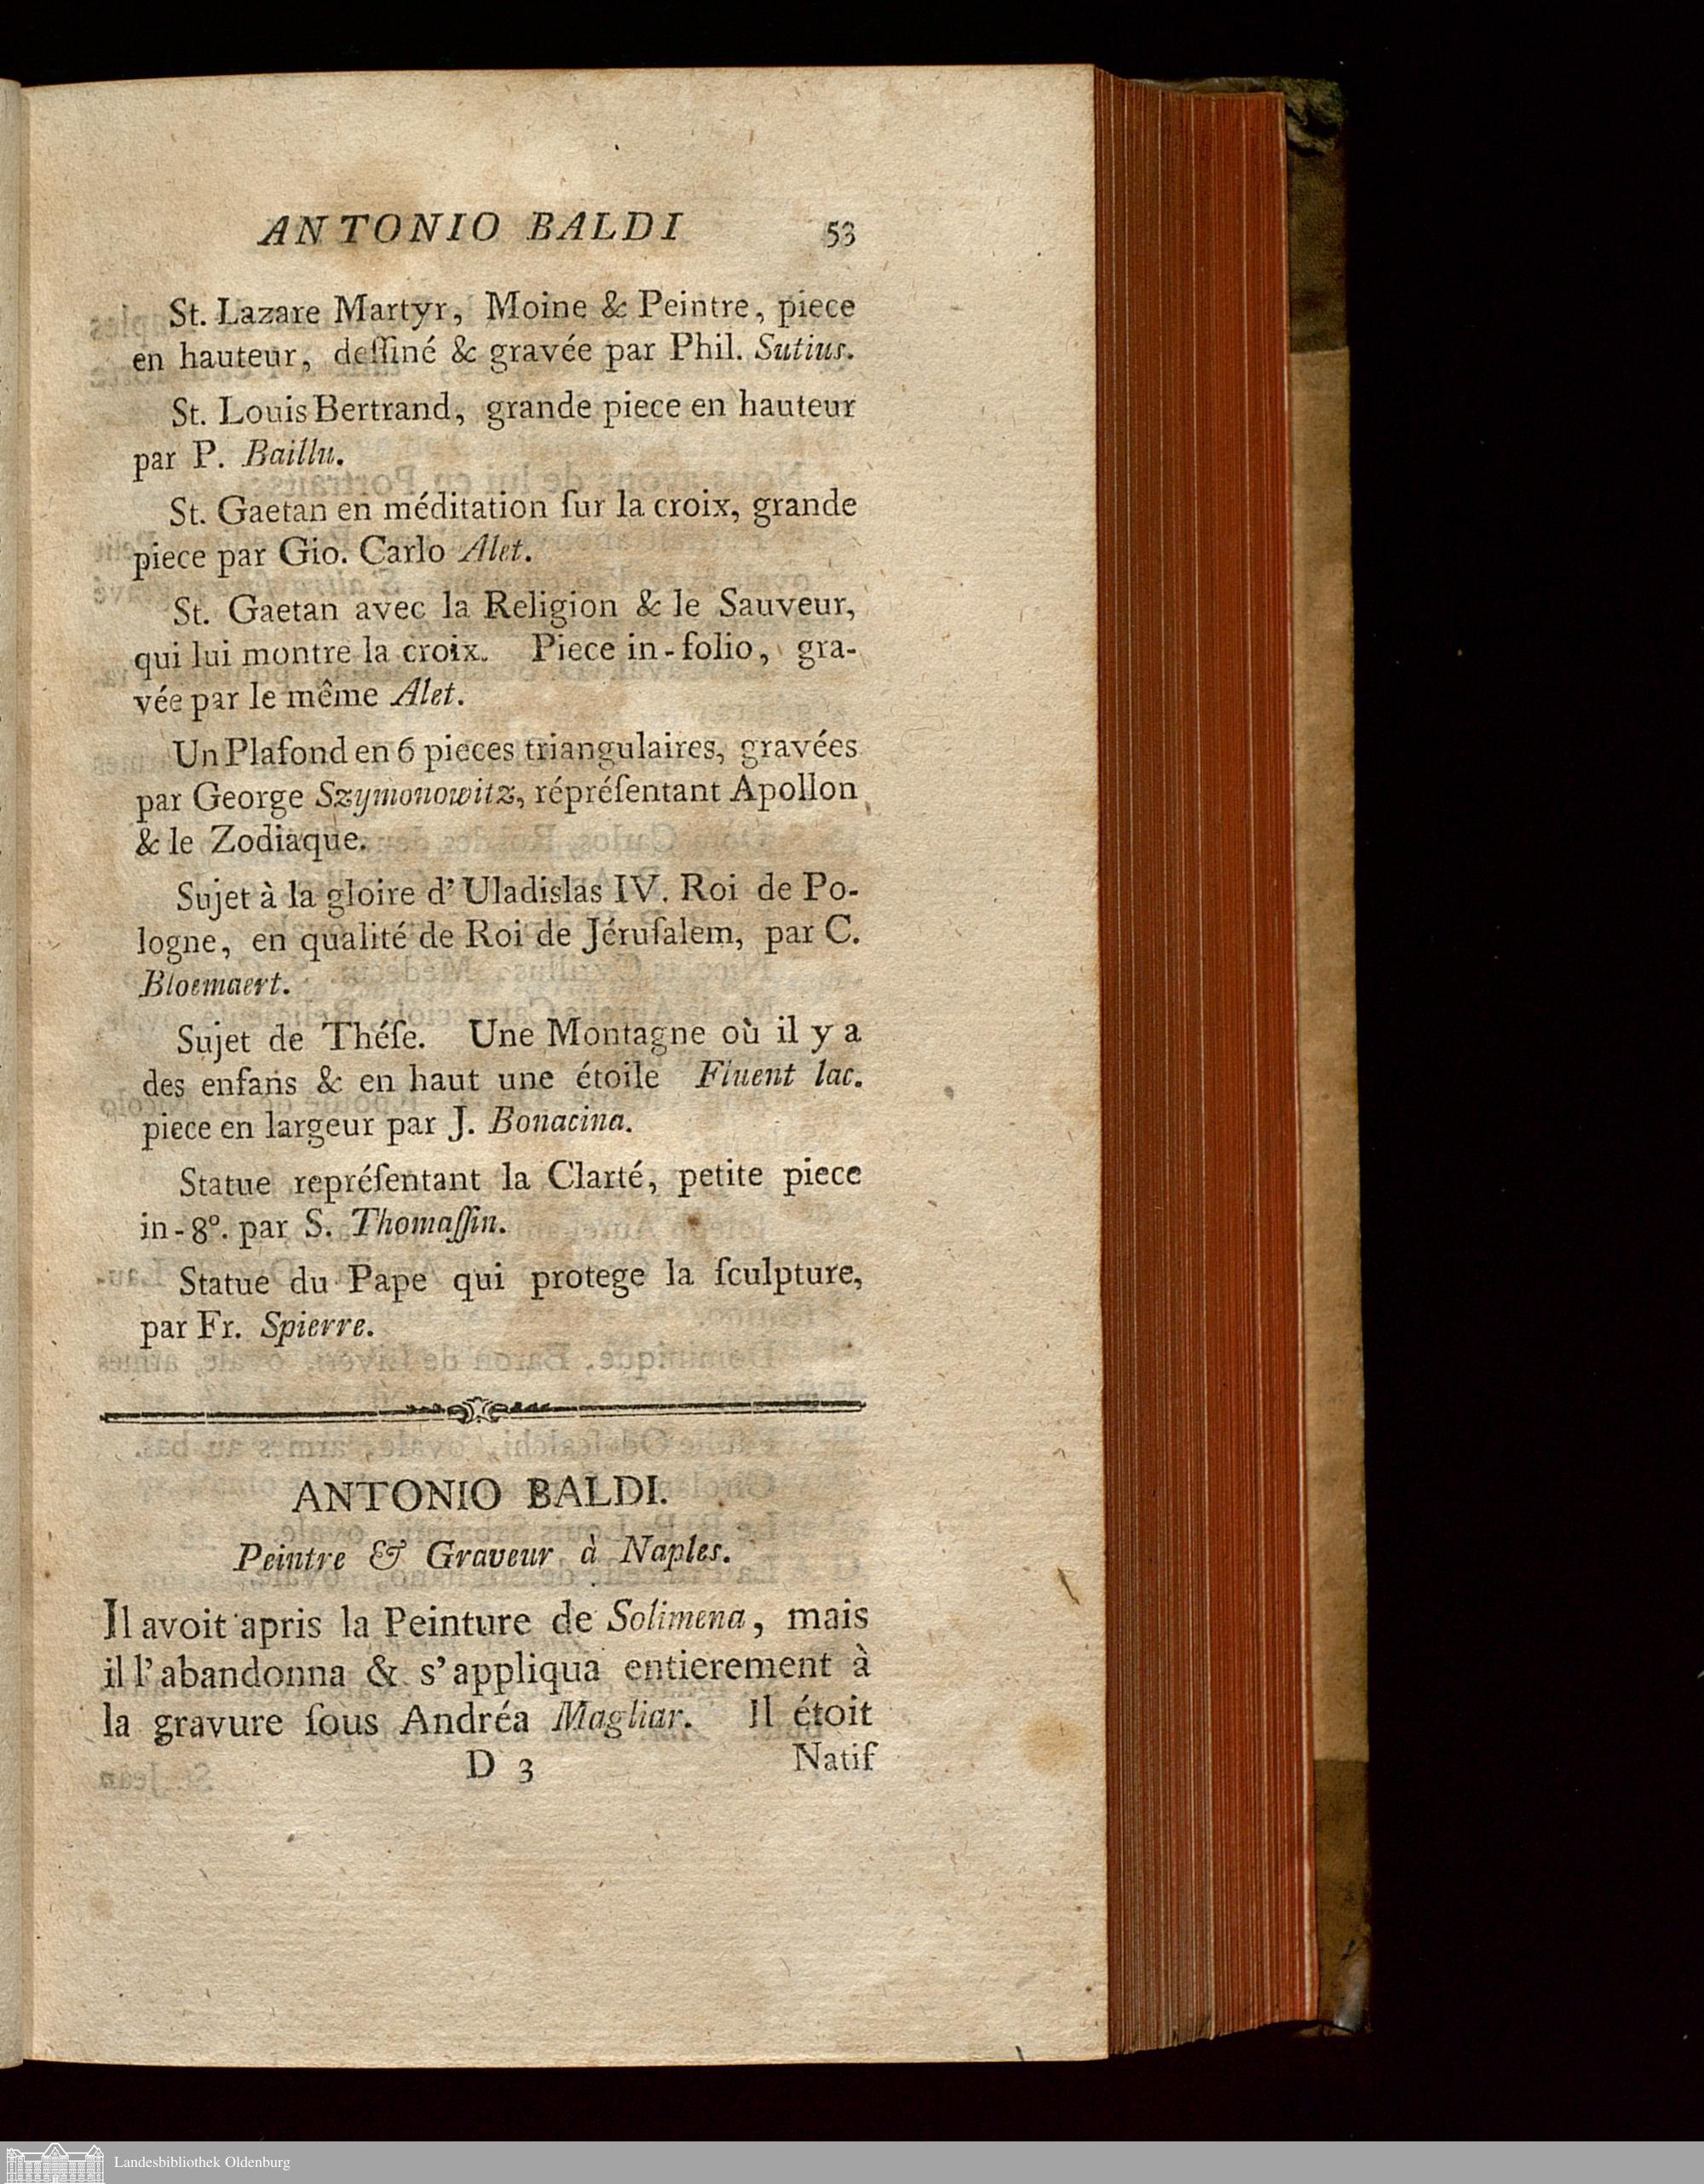 ANTONIO BALDI 53
St. Lazare Martyr, Moine & Peintre, piece
en hauteur, deſſiné & gravée par Phil. Sutius.
St. Louis Bertrand, grande piece en hauteur
par P. Baillu.
St. Gaetan en méditation ſur la croix, grande
piece par Gio. Carlo Alet.
St. Gaetan avec la Religion & le Sauveur,
qui lui montre la croix. Piece in-folio, gra-
vée par le même Alet.
Un Plafond en 6 pieces triangulaires, gravées
par George Szymonowitz, répréſentant Apollon
& le Zodiaque.
Sujet à la gloire d'Uladislas IV. Roi de Po-
logne, en qualité de Roi de Jéruſalem, par C.
Bloemaert.
Sujet de Théſe. Une Montagne où il y a
des enfans & en haut une étoile Fluent lac.
piece en largeur par J. Bonacina.
Statue repréſentant la Clarté, petite piece
in-8°. par S. Thomaſſin.
Statue du Pape qui protege la ſculpture,
par Fr. Spierre.
ANTONIO BALDI.
Peintre & Graveur à Naples.
Il avoit apris la Peinture de Solimena, mais
il l'abandonna & s'appliqua entierement à
la gravure ſous Andréa Magliar. Il étoit
D 3 Natif
Landesbibliothek Oldenburg